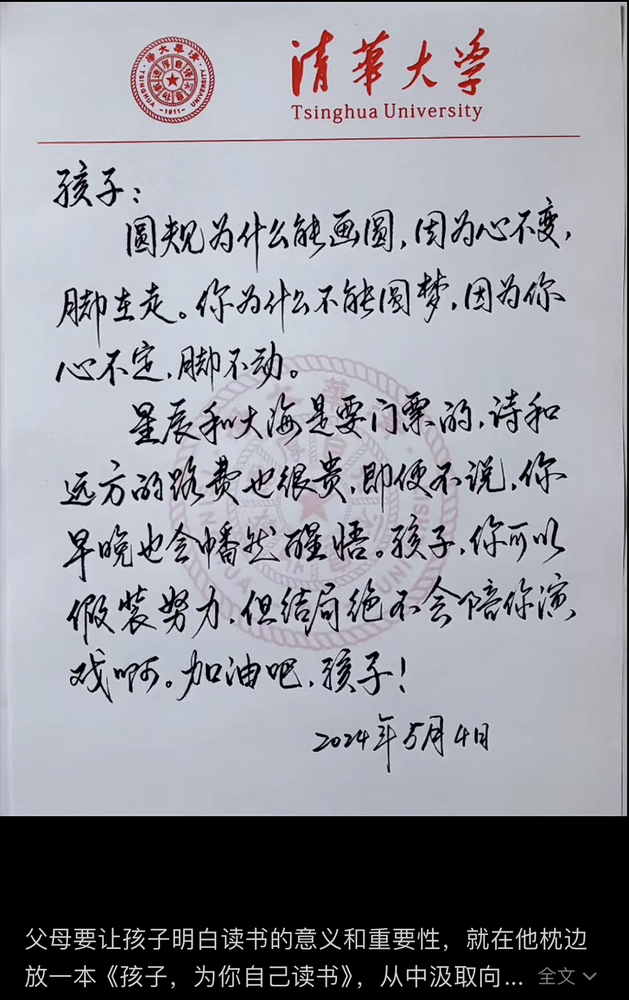 清華大学
Tsinghua University
TSINGHUA UNIVERSITY
-1911-
孩子：
圆规为什么能画圆，因为心不变，
脚在走。你为什么不能圆梦，因为你
心不定，脚不动。
星辰和大海是要门票的，诗和
远方的路费也很贵，即便不说，你
早晚也会幡然醒悟。孩子，你可以
假装努力，但结局绝不会陪你演
戏啊。加油吧，孩子！
2024年5月4日
父母要让孩子明白读书的意义和重要性，就在他枕边
放一本《孩子，为你自己读书》，从中汲取向... 全文